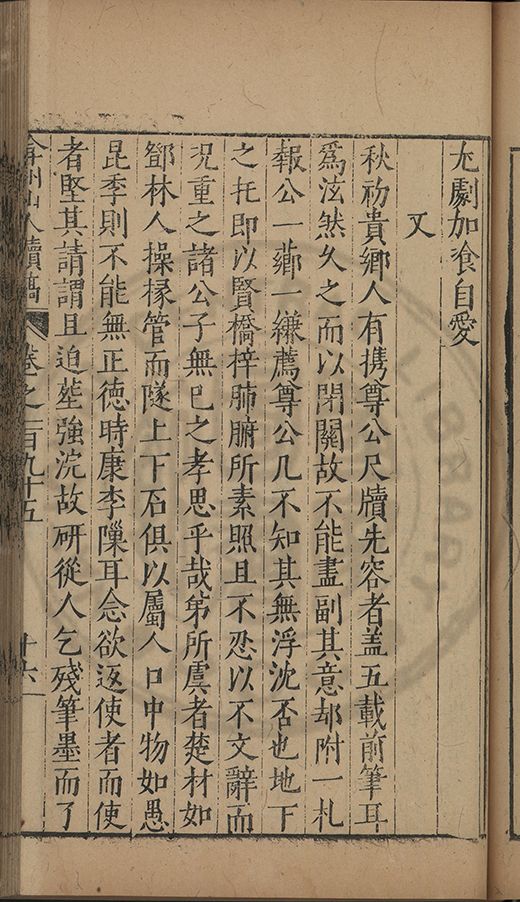 尤劇加飡自愛
又
秋初貴鄉人有携尊公尺牘先容者盖五載前筆耳
爲泫然久之而以閉關故不能盡副其意却附一札
報公一薌一縑薦尊公几不知其無浮沈否也地下
之托即以賢橋梓肺腑所素照且不忍以不文辭而
况重之諸公子無已之孝思乎哉苐所虞者楚材如
鄧林人操椽管而隧上下石俱以屬人口中物如愚
昆季則不能無正德時康李隟耳念欲返使者而使
者堅其請謂且迫塟強浣故研從人乞殘筆墨而了
弇州山人續稿
卷之一百九十五
十六